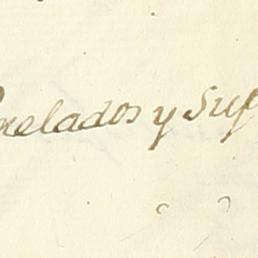 Prelados y Sup